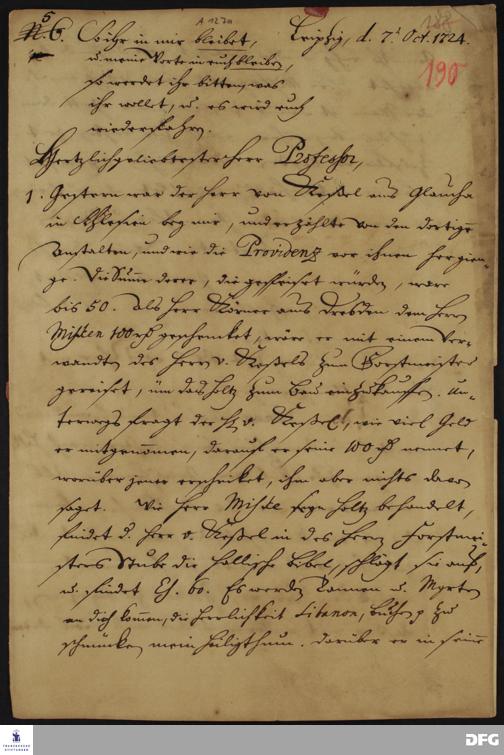 A 127n
190
N 6. So ihr in mir bleibet, Leipzig, d. 7. Oct. 1724.
u. meine Worte in euch bleiben,
so werdet ihr bitten, was
ihr wollet, u. es wird euch
wiederfahren.
Hertzlichgeliebtester Herr Professor,
1. Gestern war der Herr von Keßel aus Glaucha
in Schlesien bey mir, und erzählte von den dortigen
Anstalten, und wie die Providenz vor ihnen hergien-
ge. Die Summe derer, die gespeiset würden, wäre
bis 50. Als Herr Körner aus Dresden dem Herrn
Mischken 100 rh geschencket, wäre er mit einem Ver-
wandten des Herrn v. Keßels zum Forstmeister
gereiset, um das Holtz zum Bau einzukauffen. Un-
terwegs fragt der H. v. Keßel, wie viel Geld
er mitgenommen, darauf er seine 100 rh nennet,
worüber jener erschricket, ihm aber nichts davon
saget. Wie Herr Mischke sein Holtz behandelt,
findet d. Herr v. Keßel in des Herrn Forstmei-
sters Stube die Hallische Bibel, schlägt sie auf,
u. findet Es. 60. Es werden Tannen u. Myrten
an dich kommen, die Herrlichkeit Libanon, Buchen p zu
schmücken mein Heiligthum. Darüber er in seinem
FRANCKESCHE
STIFTUNGEN
DFG